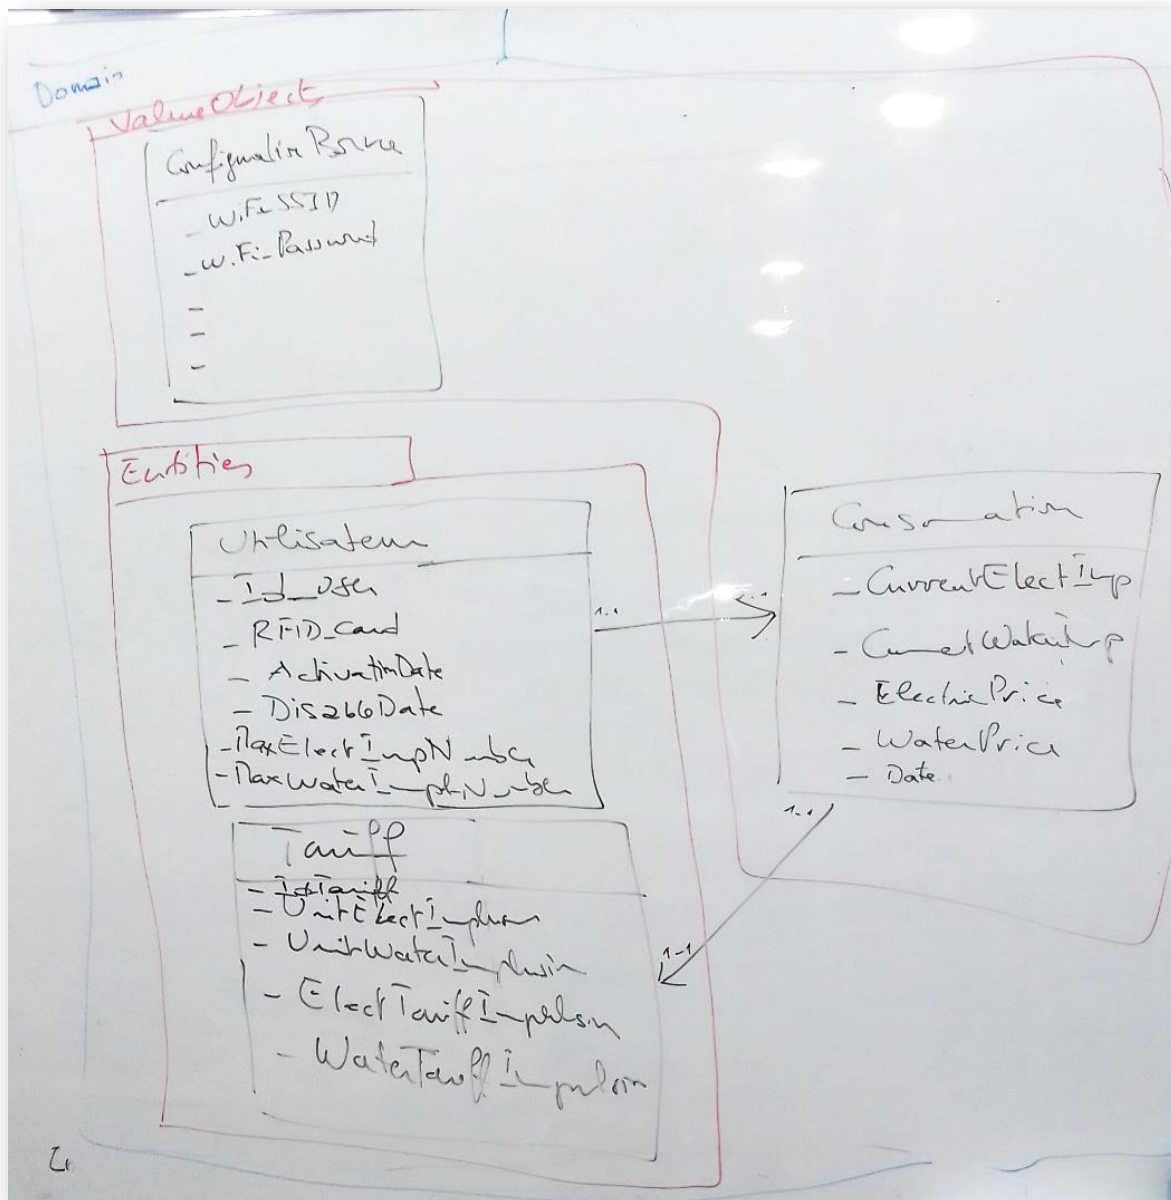 Domain
ValueObject
Configuration Borne
- WiFi SSID
- Wi.Fi_Password
-
-
-
Entities
Utilisateur
- Id_User
- RFID_Card
- ActivationDate
- DisableDate
- MaxElectImpNumber
- MaxWaterImptNumber
1..1
Consomation
- CurrentElectImp
- CurrentWaterImp
- ElectricPrice
- WaterPrice
- Date
1-1
1-1
Tariff
- IdTariff
- UnitElectImpulsion
- UnitWaterImplusion
- ElectTariffImpulsion
- WaterTariffImpulsion